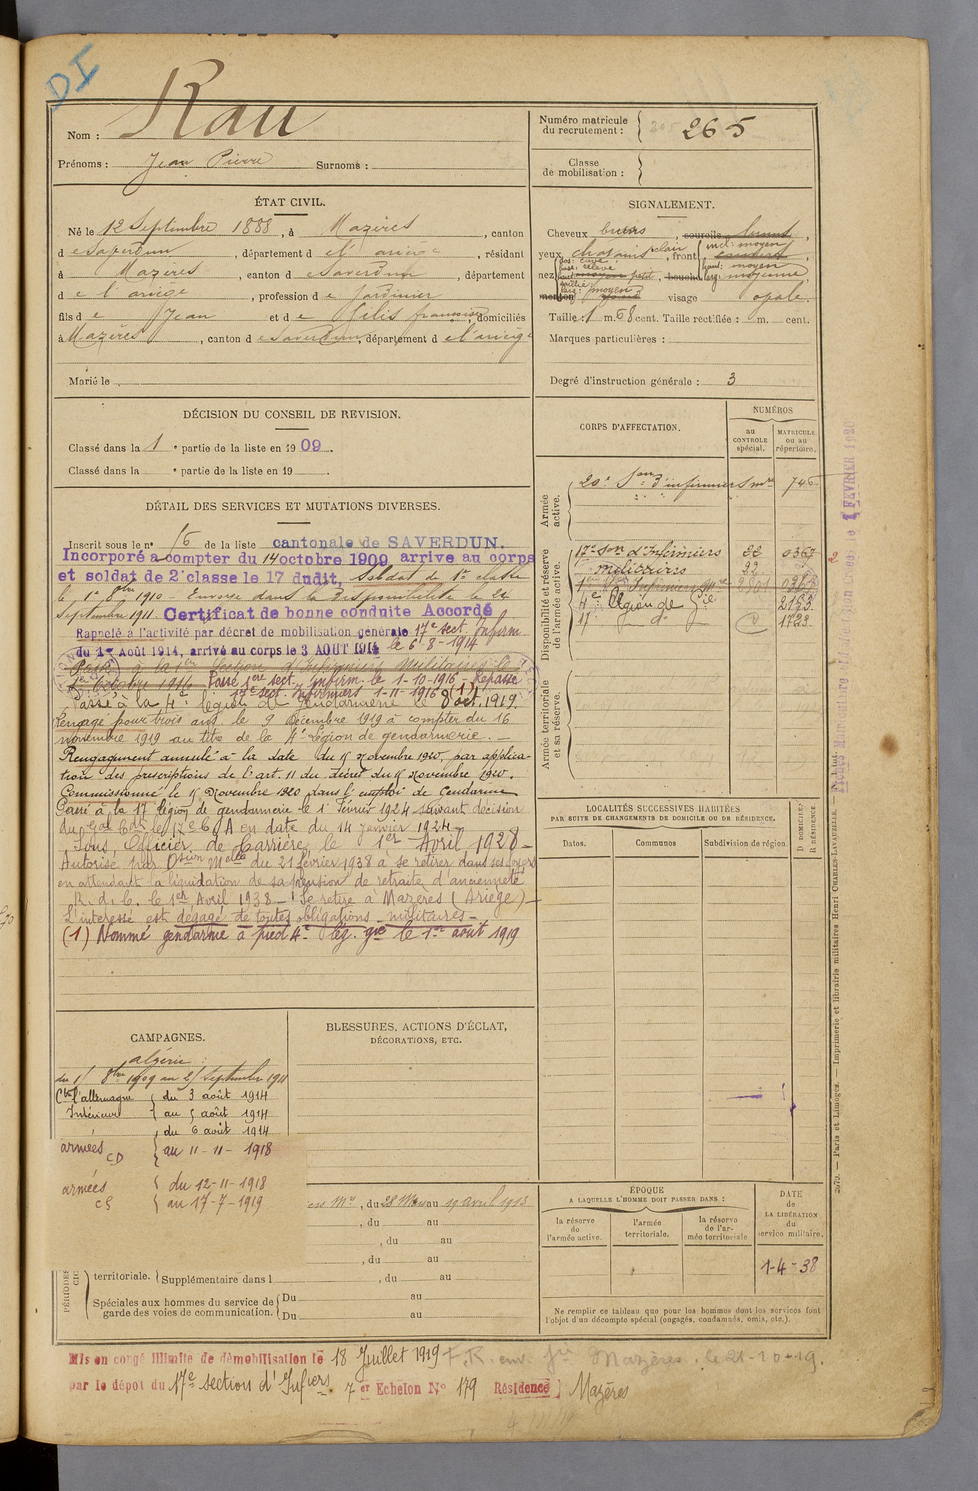 DI
Nom : Rau
Prénoms : Jean Pierre Surnoms :
Numéro matricule du recrutement : 265
Classe de mobilisation :
ÉTAT CIVIL.
Né le 12 Septembre 1888, à Mazères, canton
d e Saverdun, département d e l'ariège, résidant
à Mazères, canton d e Saverdun, département
d e l'ariège, profession d e Jardinier
fils d e Jean et d e Félis françoise, domiciliés
à Mazères, canton d e Saverdun, département d e l'ariège
Marié le
SIGNALEMENT.
Cheveux bruns, sourcils bruns,
yeux chatains clair, front incl: moyen
haut: moyen
nez dos: cave
base: relevé
petit, bouche moyenne,
menton rond visage ovale.
Taille : 1 m. 68 cent. Taille rectifiée : m. cent.
Marques particulières :
Degré d'instruction générale : 3
DÉCISION DU CONSEIL DE REVISION.
Classé dans la 1e partie de la liste en 1909.
Classé dans la e partie de la liste en 19 .
DÉTAIL DES SERVICES ET MUTATIONS DIVERSES.
Inscrit sous le n° 16 de la liste cantonale de SAVERDUN.
Incorporé a compter du 14 octobre 1909 arrive au corps
et soldat de 2e classe le 17 dudit, Soldat de 1re classe
le 1er 8bre 1910 - Envoyé dans la Disponibilité le 24
Septembre 1911. Certificat de bonne conduite Accordé
Rappelé à l'activité par décret de mobilisation générale 17e sect. Infirm
du 1er Août 1914, arrivé au corps le 3 AOUT 1914 le 6-8-1914
Passé à la 1ère Section d'Infirmiers Militaires le
1er Octobre 1916 Passé 1ère sect. Infirm. le 1-10-1916 - Repassé
17e sect. Infirmiers 1-11-1916 (1)
Passé à la 4e légion de Gendarmerie le 8 oct. 1919.
Rengagé pour trois ans le 9 Décembre 1919 à compter du 16
novembre 1919 au titre de la 4e Légion de gendarmerie. -
Rengagement annulé à la date du 15 novembre 1920, par applica-
tion des prescriptions de l'art. 11 du décret du 5 novembre 1920.
Commissionné le 15 Novembre 1920 dans l'emploi de Gendarme
Passé à la 17e légion de gendarmerie le 1er Février 1924 suivant décision
du Gal Cdt le 17e C A en date du 14 Janvier 1924
Sous Officier de Carrière le 1er Avril 1928 -
Autorisé par Dsion Melle du 21 février 1938 à se retirer dans ses foyers
en attendant la liquidation de sa pension de retraite d'ancienneté
R. d. C. le 1er Avril 1938 - Se retire à Mazères (Ariège) -
L'intéressé est dégagé de toutes obligations militaires -
(1) Nommé gendarme à pied 4e lég. gie le 1er août 1919
CORPS D'AFFECTATION.
NUMÉROS
au CONTROLE spécial.
MATRICULE ou au répertoire.
Armée active.
20e Son d'infirmiers mres 746
Disponibilité et réserve de l'armée active.
17e Son d'Infirmiers 22 0367
militaires 22
1ère Son Infirmiers Mres 2801
4e Légion de Gie 2163
17 do 1723
Armée territoriale et sa réserve.
LOCALITÉS SUCCESSIVES HABITÉES
PAR SUITE DE CHANGEMENTS DE DOMICILE OU DE RÉSIDENCE.
Dates.
Communes
Subdivision de région.
D DOMICILE.
R RÉSIDENCE
CAMPAGNES.
algérie :
du 15 8bre 1909 au 25 Septembre 1911
Cte l'allemagne du 3 août 1914
Intérieur au 5 août 1914
du 6 août 1914
armées CD au 11-11-1918
armées CS du 12-11-1918
au 17-7-1919
BLESSURES, ACTIONS D'ÉCLAT,
DÉCORATIONS, ETC.
, du 28 Mars au 19 avril 1913
, du au
, du au
, du au
territoriale. Supplémentaire dans l , du au
Spéciales aux hommes du service de garde des voies de communication. Du au
Du au
ÉPOQUE
A LAQUELLE L'HOMME DOIT PASSER DANS :
la réserve de l'armée active.
l'armée territoriale.
la réserve de l'armée territoriale
DATE de LA LIBÉRATION du service militaire.
1-4-38
Ne remplir ce tableau que pour les hommes dont les services font
l'objet d'un décompte spécial (engagés, condamnés, omis, etc.).
Mis en congé illimité de démobilisation le 18 Juillet 1919 F. R. env. Gie Mazères. le 21-10-19.
par le dépôt du 17e section d'Infiers 7er Echelon N° 179 Résidence Mazères
Paris et Limoges. — Imprimerie et librairie militaires Henri CHARLES-LAVAUZELLE.